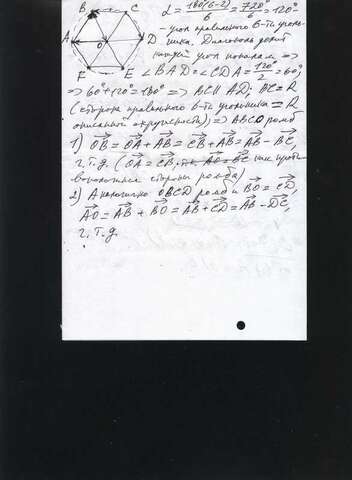 B C
A O D
F E
α = 180(6-2)/6 = 720/6 = 120° -
- угол правильного 6-ти уголь-
ника. Диагональ делит
угол пополам, =>
=> ∠BAD = ∠CDA = 120°/2 = 60°;
=> 60°+120° = 180° => BC || AD; BC = R
(сторона правильного 6-ти угольника = R
описанной окружности) => ABCO ромб
1) OB = OA + AB = CB + AB = AB - BC,
ч.т.д. (OA = CB, т.к. AO = BC как проти-
воположные стороны ромба)
2) Аналогично OBCD ромб и BO = CD,
AO = AB + BO = AB + CD = AB - DC,
ч.т.д.